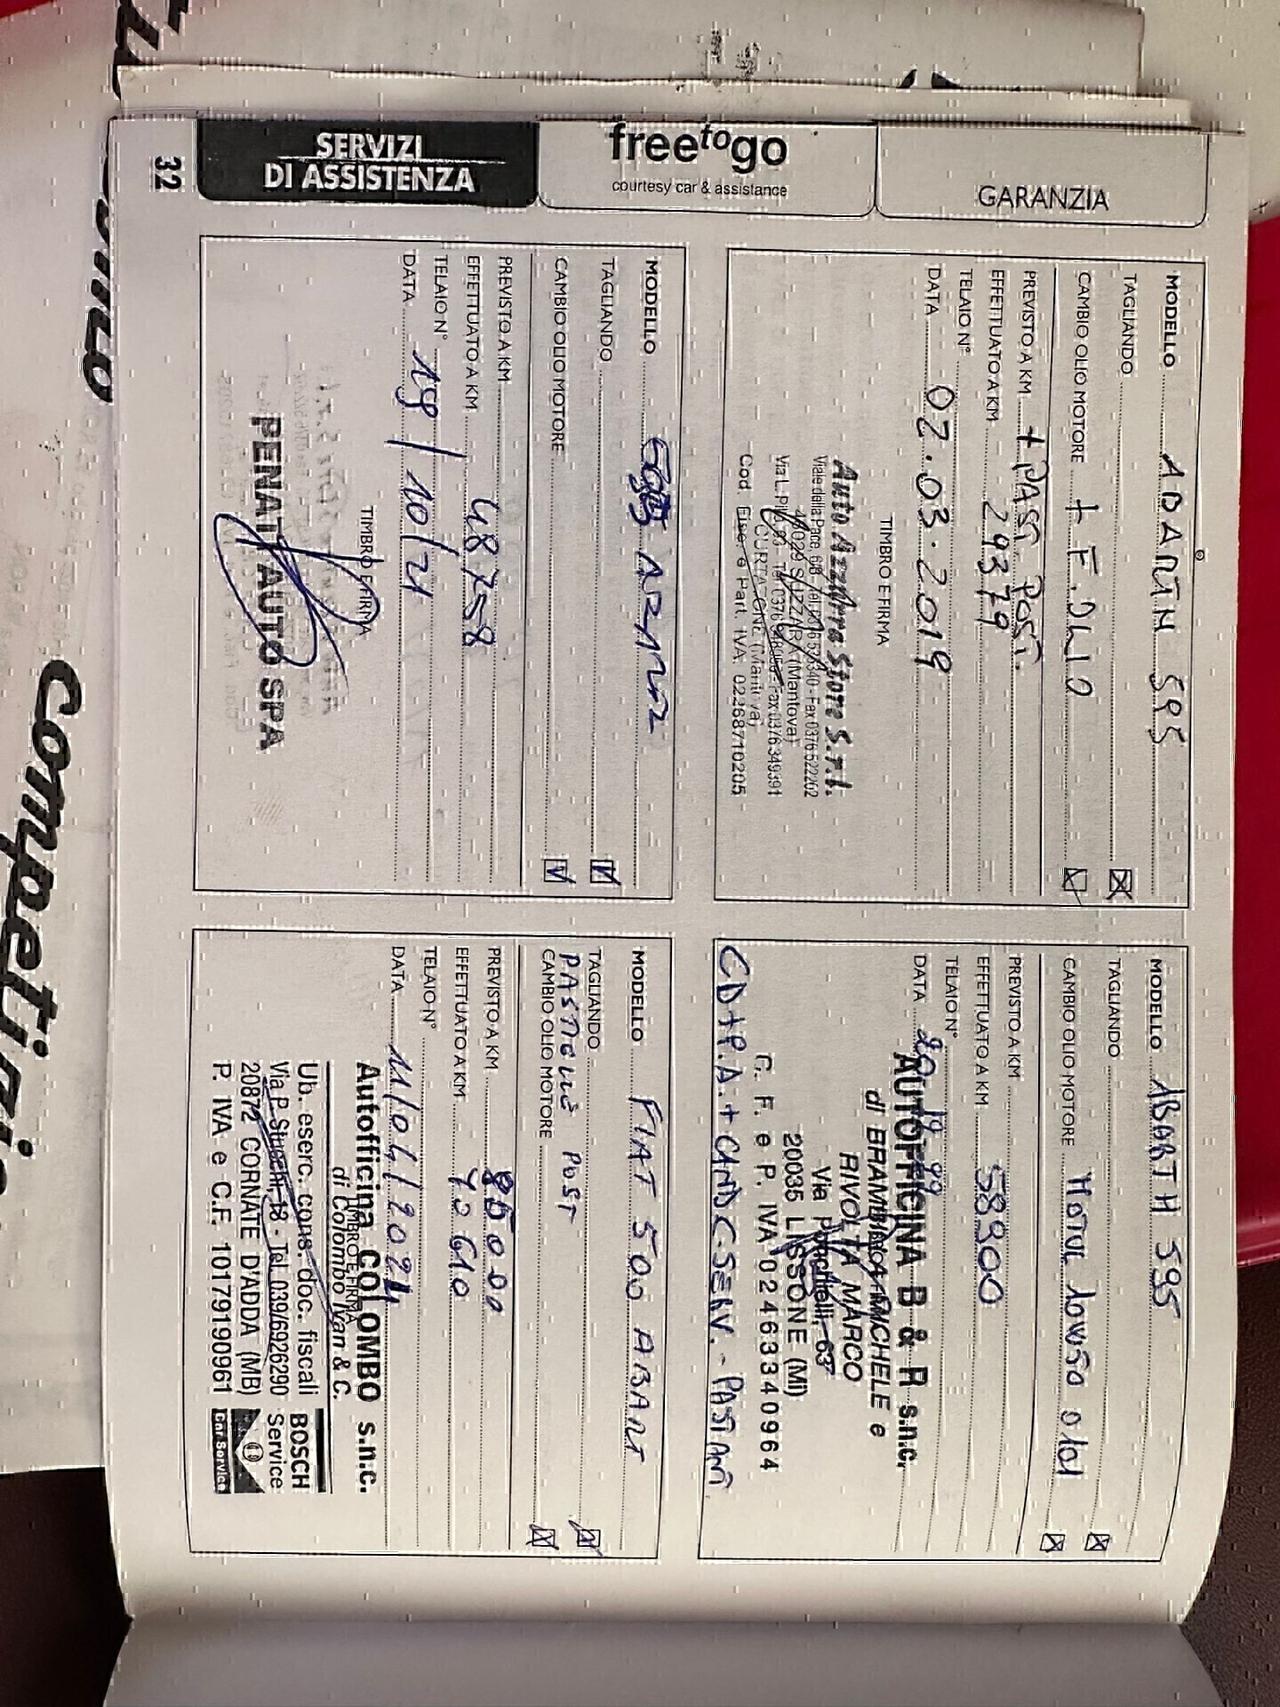 SERVIZI
DI ASSISTENZA
free to go
courtesy car & assistance
GARANZIA
32
MODELLO ABARTH 595
TAGLIANDO
CAMBIO OLIO MOTORE + F. OLIO
PREVISTO A KM + PAST. POST.
EFFETTUATO A KM 29379
TELAIO N°
DATA 02.03.2019
TIMBRO E FIRMA
Auto Azzurra Store S.r.l.
46029 SUZZARA (Mantova)
CURTATONE (Mantova)
Cod. Fisc. e Part. IVA 02268710205
MODELLO ABARTH 595
TAGLIANDO
CAMBIO OLIO MOTORE MOTUL 10W50
PREVISTO A KM
EFFETTUATO A KM 58900
TELAIO N°
DATA
AUTOFFICINA B & R s.n.c.
di BRAMBILLA MICHELE e
RIVOLTA MARCO
Via Ponchielli, 63
20035 LISSONE (MI)
C. F. e P. IVA 02463340964
MODELLO 595 ABARTH
TAGLIANDO
CAMBIO OLIO MOTORE
PREVISTO A KM
EFFETTUATO A KM 48758
TELAIO N°
DATA 19/10/21
TIMBRO E FIRMA
PENATI AUTO SPA
MODELLO FIAT 500 ABART
TAGLIANDO
PASTELLE POST
CAMBIO OLIO MOTORE
PREVISTO A KM
EFFETTUATO A KM 70610
TELAIO N°
DATA 11/04/2024
TIMBRO E FIRMA
Autofficina COLOMBO s.n.c.
di Colombo Ivan & C.
Ub. eserc. cons. doc. fiscali
Via P. Stucchi, 18 - Tel. 039/6926290
20872 CORNATE D'ADDA (MB)
P. IVA e C.F. 10179190961
BOSCH
Service
Car Service
Competizione